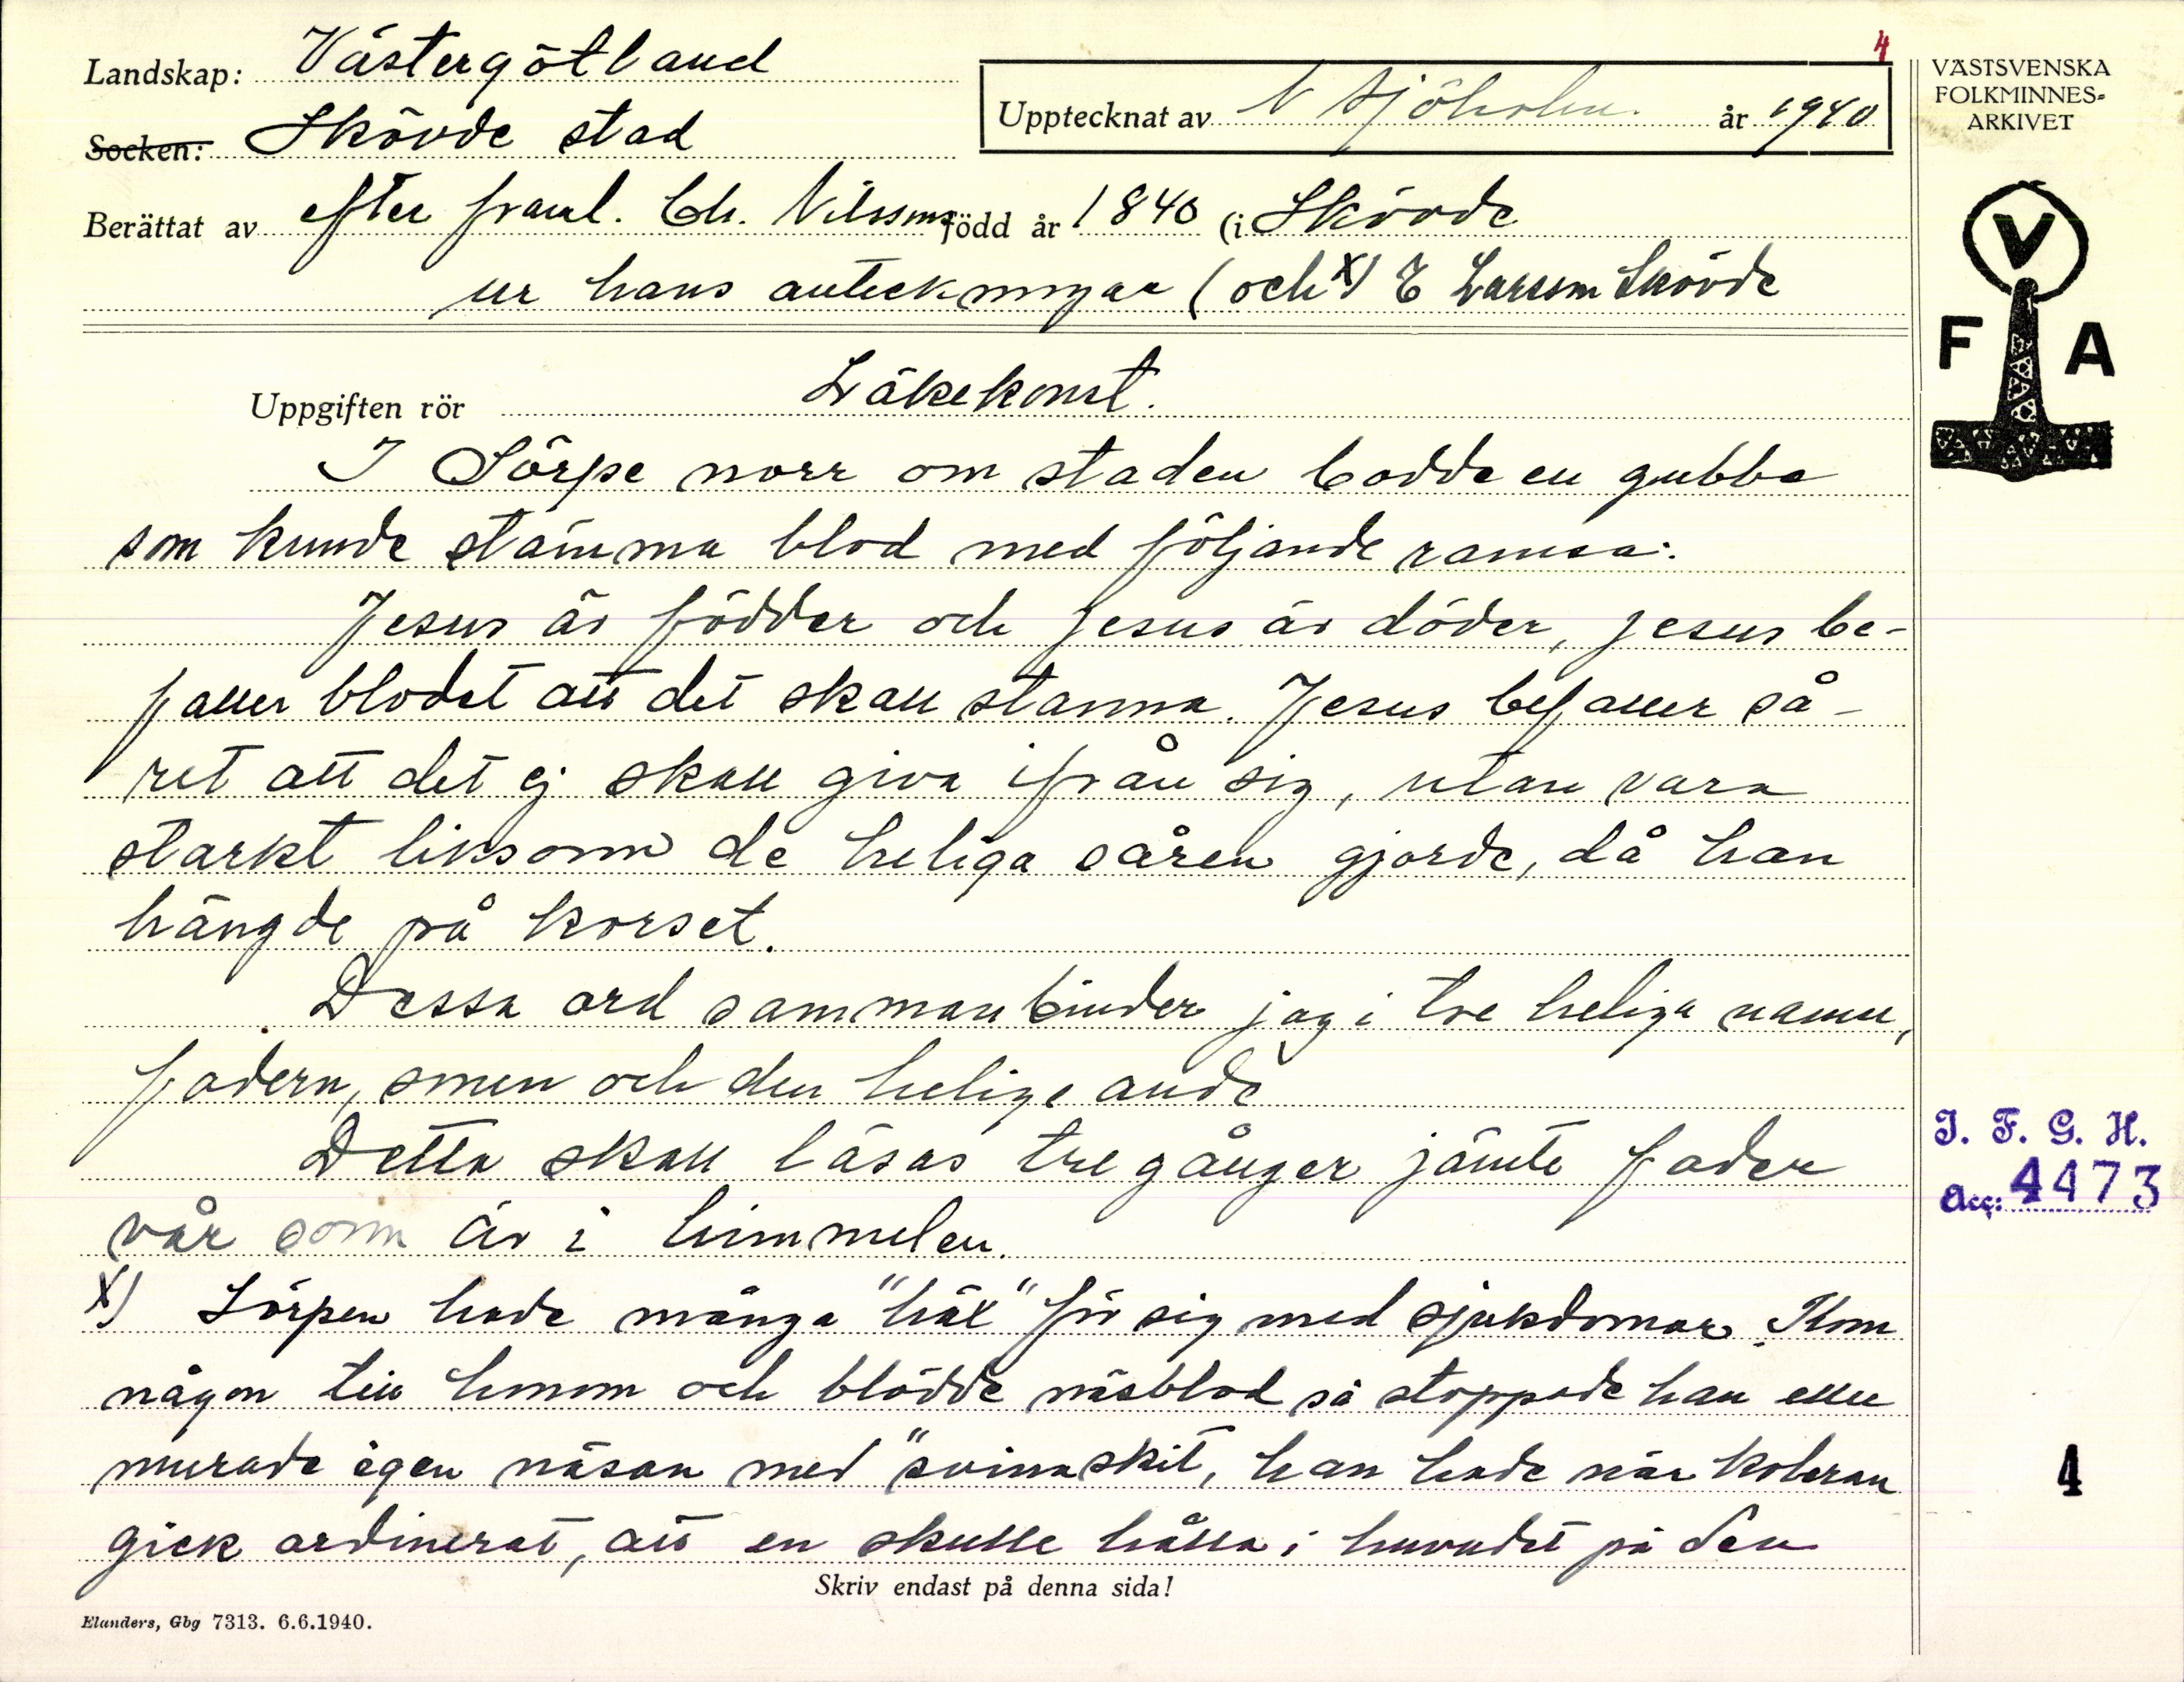 4
Landskap: Västergötland
Socken: Skövde stad
Upptecknat av N Sjöholm. år 1940
VÄSTSVENSKA
FOLKMINNES-
ARKIVET
Berättat av efter framl. Ch. Nilsson född år 1840 (i Skövde
ur hans anteckningar (och x) E Larsson Skövde
V
F A
Uppgiften rör Läkekonst.
I Sörpe norr om staden bodde en gubbe
som kunde stämma blod med följande ramsa:
Jesus är födder och Jesus är döder, Jesus be-
faller blodet att det skall stanna. Jesus befaller så-
ret att det ej skall giva ifrån sig, utan vara
starkt liksom de heliga såren gjorde, då han
hängde på korset.
Dessa ord sammanbinder jag i tre heliga namn,
fadern, sonen och den helige ande
Detta skall läsas tre gånger jämte fader
vår som är i himmelen.
x) Sörpen hade många "häx" för sig med sjukdomar. Kom
någon till honom och blödde näsblod så stoppade han eller
murade igen näsan med "svinaskit, han hade när koleran
gick ordinerat, att en skulle hålla i huvudet på den
Skriv endast på denna sida!
Elanders, Gbg 7313. 6.6.1940.
I. F. G. H.
Acc: 4473
4